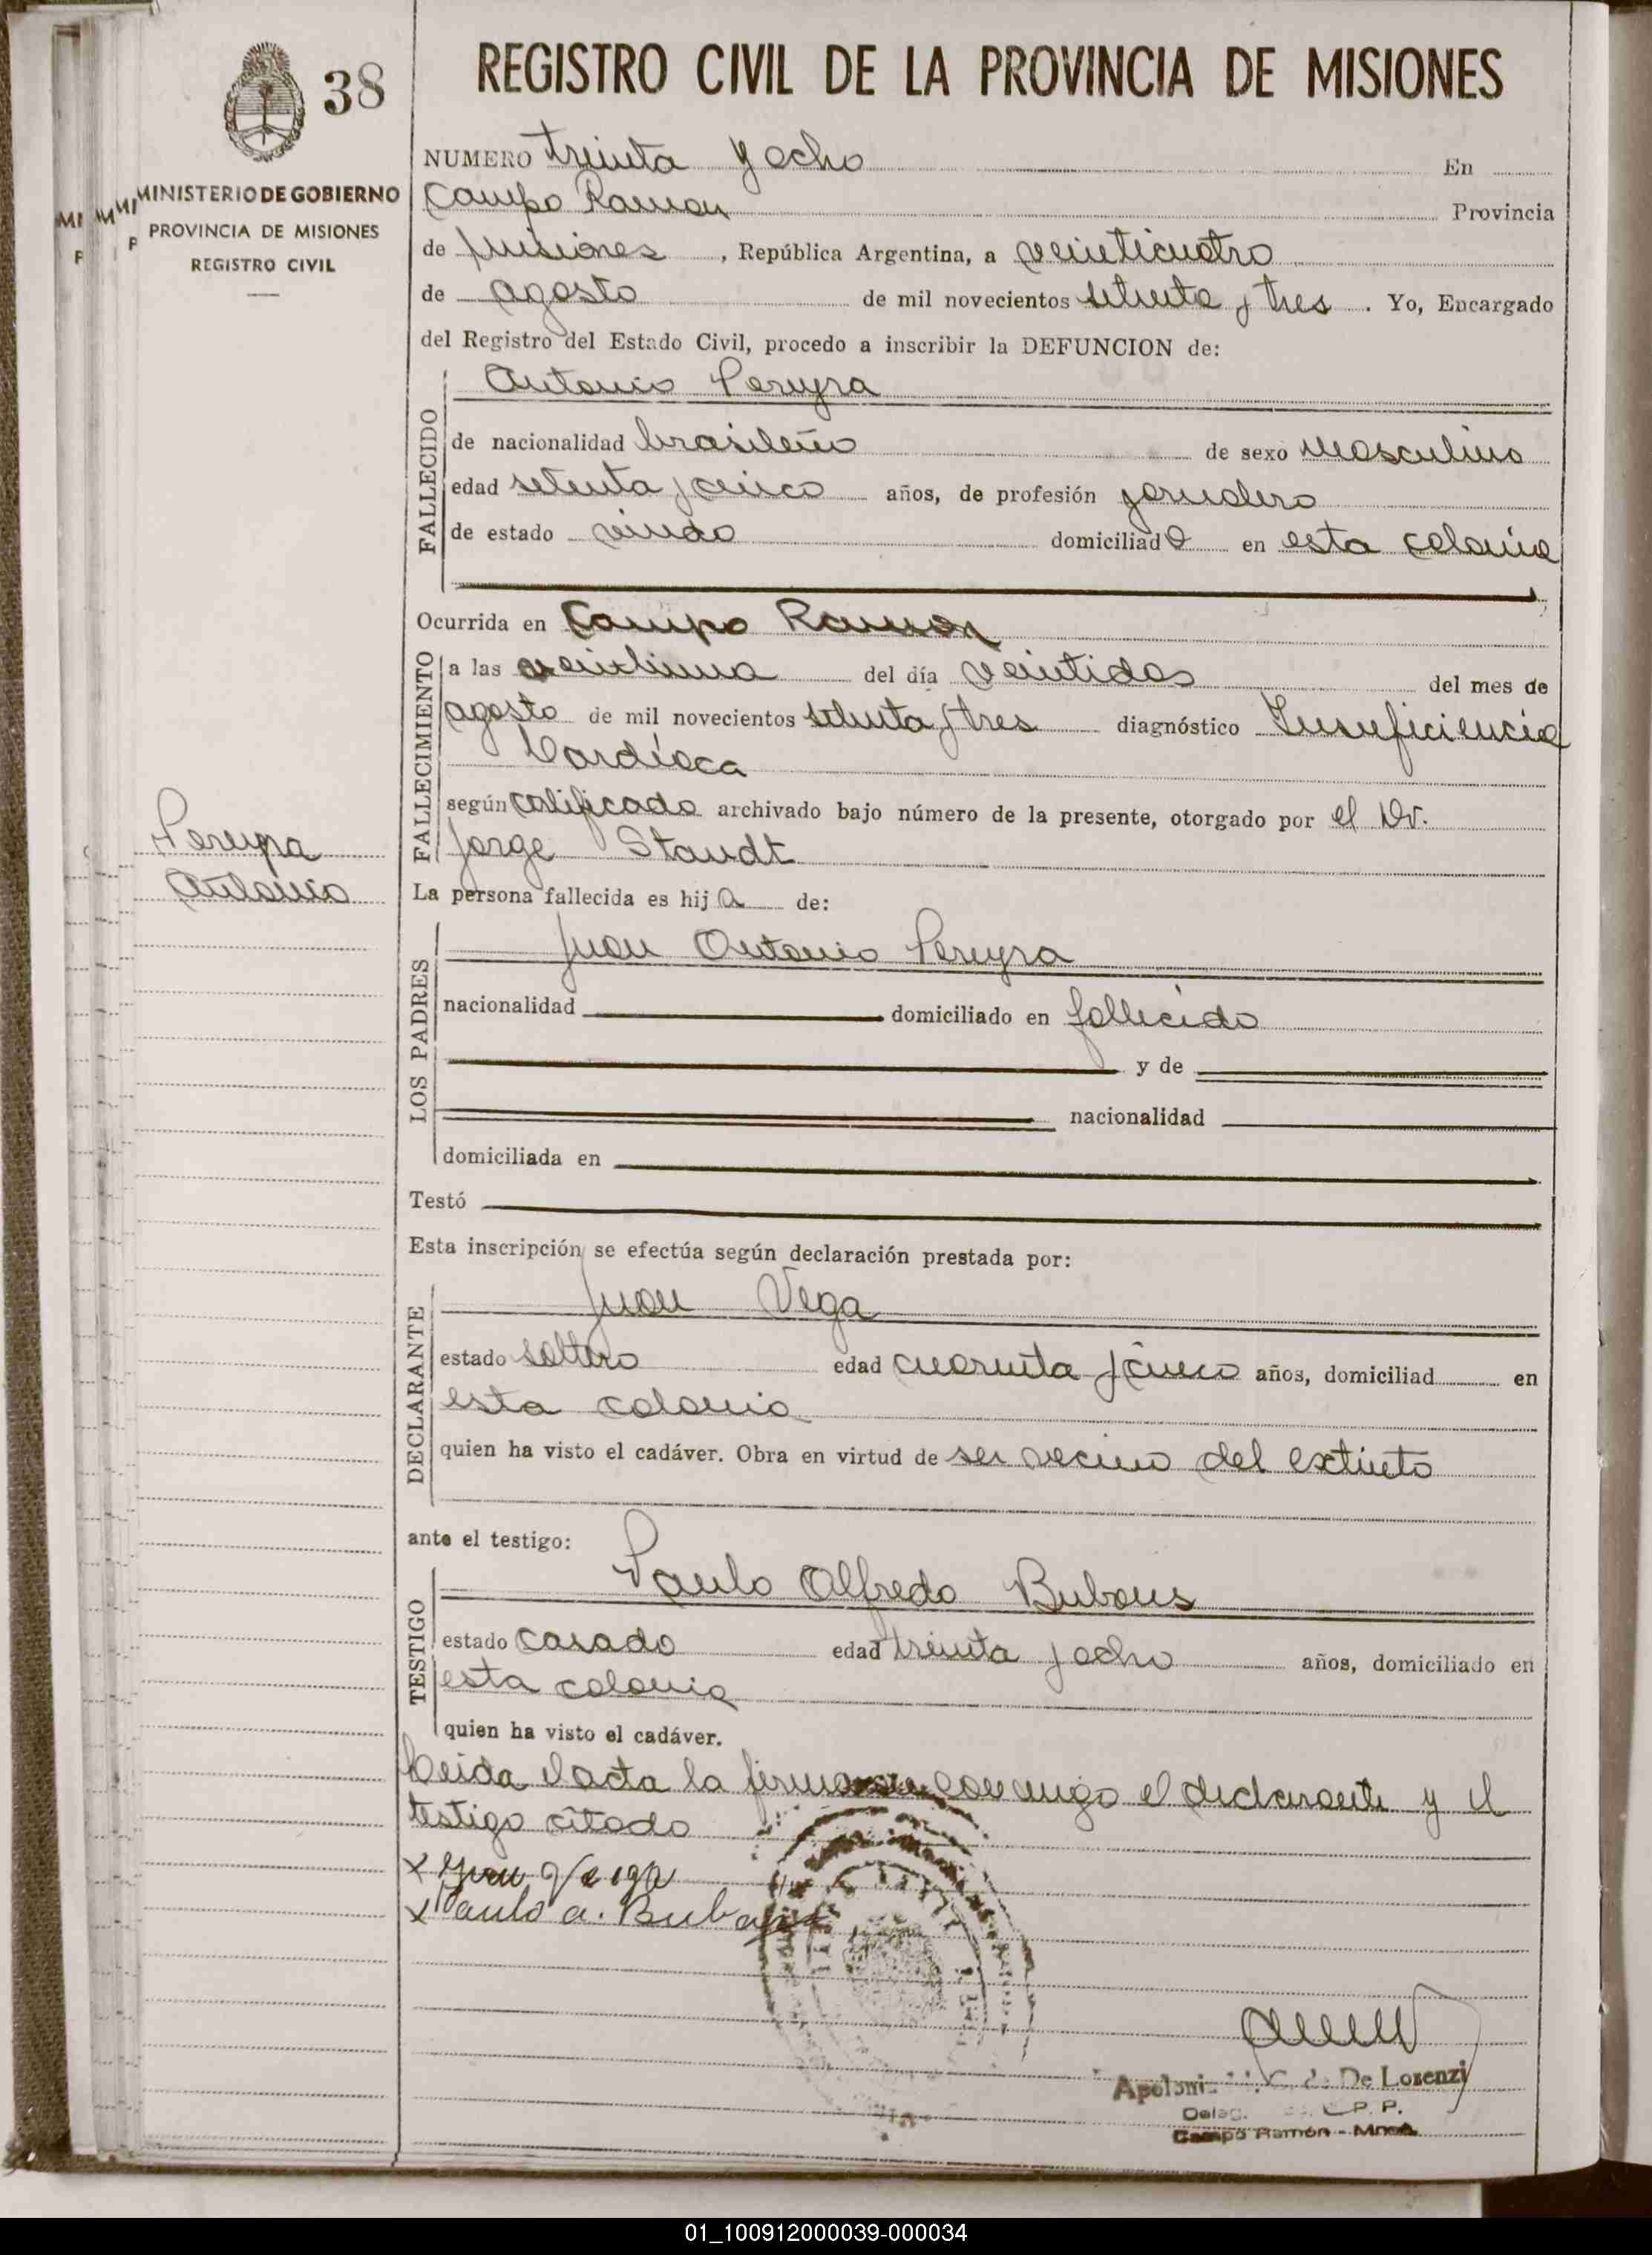 38
REGISTRO CIVIL DE LA PROVINCIA DE MISIONES
MINISTERIO DE GOBIERNO
PROVINCIA DE MISIONES
REGISTRO CIVIL
NUMERO treinta y ocho En
Campo Ramon Provincia
de misiones, República Argentina, a veinticuatro
de agosto de mil novecientos setenta y tres. Yo, Encargado
del Registro del Estado Civil, procedo a inscribir la DEFUNCION de:
Antonio Pereyra
FALLECIDO
de nacionalidad brasileño de sexo masculino
edad setenta y cinco años, de profesión jornalero
de estado viudo domiciliado en esta colonia
Ocurrida en Campo Ramon
FALLECIMIENTO
a las del día veintidos del mes de
agosto de mil novecientos setenta y tres diagnóstico Insuficiencia
Cardíaca
según certificado archivado bajo número de la presente, otorgado por el Dr.
Jorge Staudt
Pereyra
Antonio
La persona fallecida es hij o de:
LOS PADRES
Juan Antonio Pereyra
nacionalidad domiciliado en fallecido
y de
nacionalidad
domiciliada en
Testó
Esta inscripción se efectúa según declaración prestada por:
DECLARANTE
Juan Vega
estado soltero edad cuarenta y cinco años, domiciliad en
esta colonia
quien ha visto el cadáver. Obra en virtud de ser vecino del extinto
ante el testigo:
TESTIGO
Paulo Alfredo Bubans
estado casado edad treinta y ocho años, domiciliado en
esta colonia
quien ha visto el cadáver.
Leida el acta la firman conmigo el declarante y el
testigo citado
x Juan Veiga
x Paulo A.
De Lorenzi
P. P.
Campo Ramón - Mnes.
01_100912000039-000034